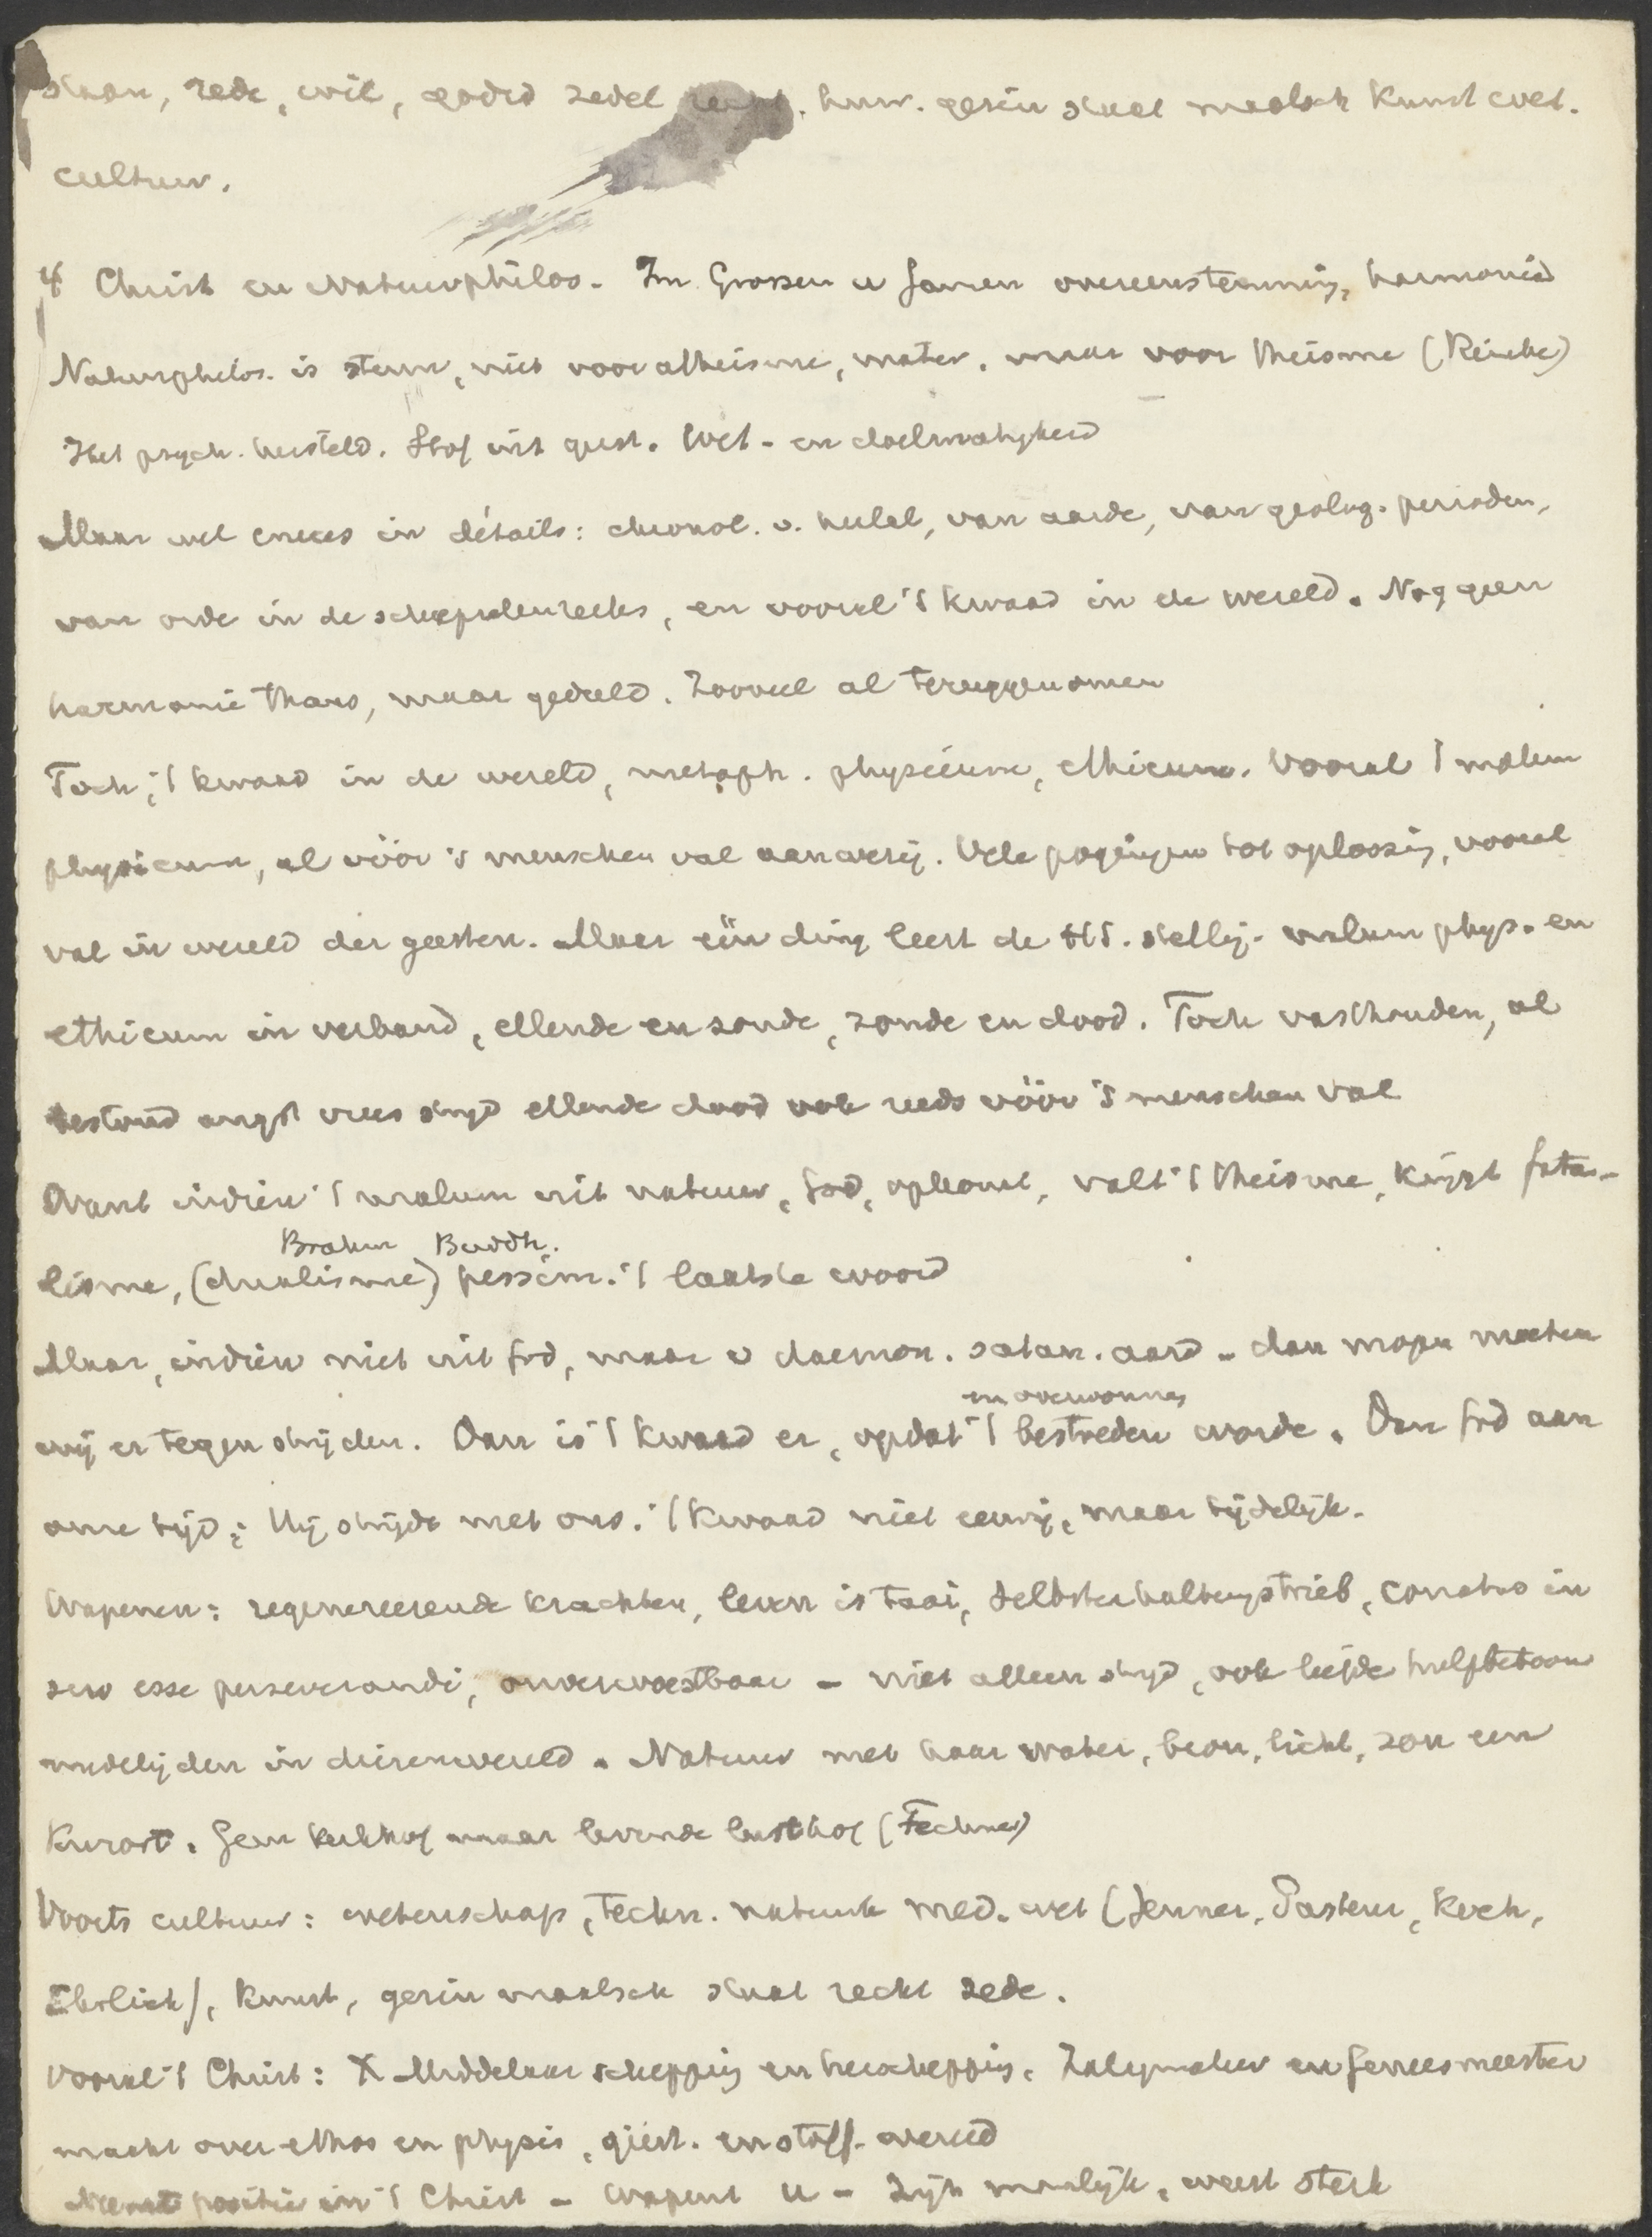 staan, rede, wil, godsd zedel recht. huw. gezin staat maatsch kunst wet.
cultuur.
4 Christ en Natuurphilos. Im Grossen u Ganzen overeenstemming, harmonie
Naturphilos. is steun, niet voor atheisme, mater. maar voor theisme (Reinke)
Het psych. hersteld. Stof uit geest. Wet- en doelmatigheid
Maar wel in détails: chronol. v. heelal, van aarde, van geolog. perioden,
van orde in de schepselenreeks, en vooral 't kwaad in de wereld. Nog geen
harmonie thans, maar geduld. Zooveel al teruggenomen
Toch, 't kwaad in de wereld, metaph. physicum, ethicum. Vooral 't malum
physicum, al vóór 's menschen val aanwezig. Vele pogingen tot oplossing, vooral
val in wereld der geesten. Maar één ding leert de HS. stellig. malum phys. en
ethicum in verband, ellende en zonde, zonde en dood. Toch vasthouden, al
bestond angst vrees strijd ellende dood ook reeds vóór 's menschen val
Want indien 't malum uit natuur, God, opkomt, valt 't theisme, krijgt fata-
Brahm Buddh.
lisme, (dualisme) pessim. 't laatste woord
Maar, indien niet uit God, maar v daemon. satan. aard - dan mogen moeten
en overwonnen
wij er tegen strijden. Dan is 't kwaad er, opdat 't bestreden worde. Dan God aan
onze zijd; Hij strijdt met ons. 't Kwaad niet eeuwig, maar tijdelijk.
Wapenen: regenereerende krachten, leven is taai, Selbsterhaltungstrieb, conatus in
suo esse perseverandi, onverwoestbaar - niet alleen strijd, ook liefde hulpbetoon
medelijden in dierenwereld. Natuur met haar water, bron, licht, zon een
Kurort. Geen kerkhof maar levende lusthof (Fechner)
Voorts cultuur: wetenschap, techn. natuurk med. wet (Jenner, Pasteur, Koch,
Ehrlich), kunst, gezin maatsch staat recht zede.
Vooral 't Christ: X Middelaar schepping en herschepping. Zaligmaker en Geneesmeester
macht over ethos en physis, geest. en stoff. wereld
Neemt positie in 't Christ - wapent u - Zijt manlijk, weest sterk